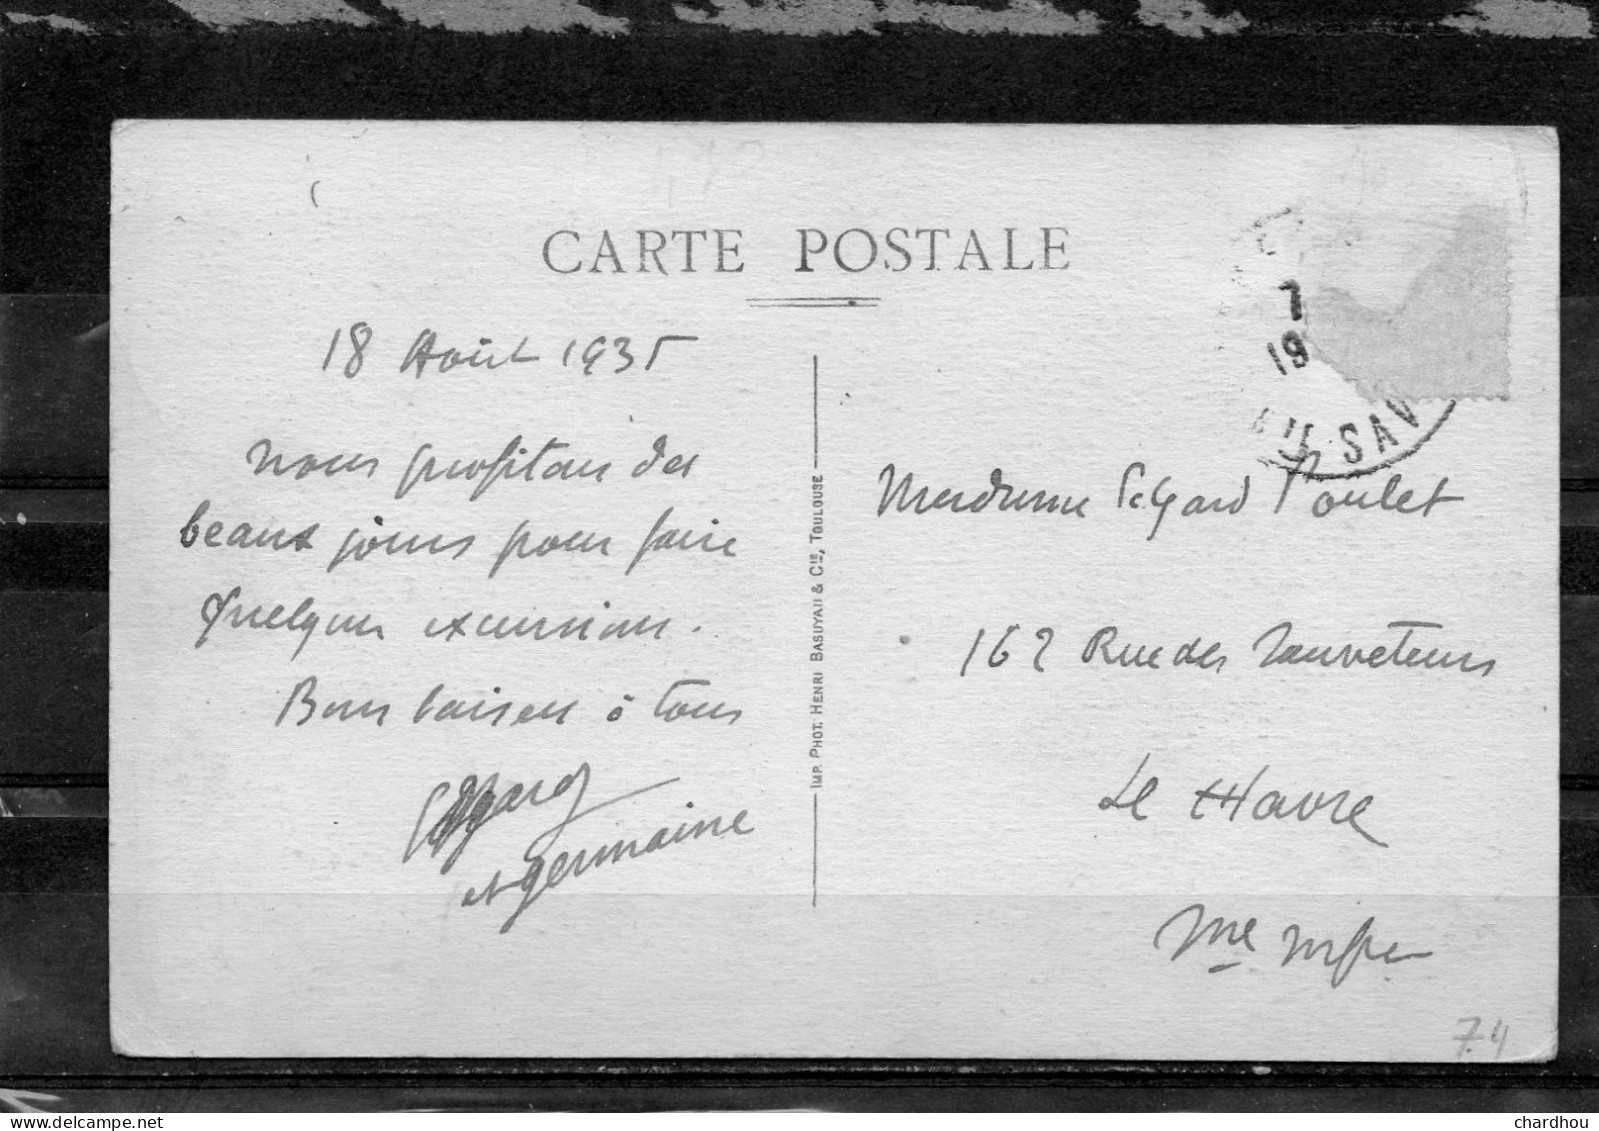 CARTE POSTALE
18 Août 1935
nous profitons des
beaux jours pour faire
quelques excursions.
Bons baisers à tous
Edgard
et germaine
IMP. PHOT. HENRI BASUYAU & Cie, TOULOUSE
7
19
SAV
Madame Edgard Poulet
162 Rue des Sauveteurs
Le Havre
Sne Infre
74
chardhou